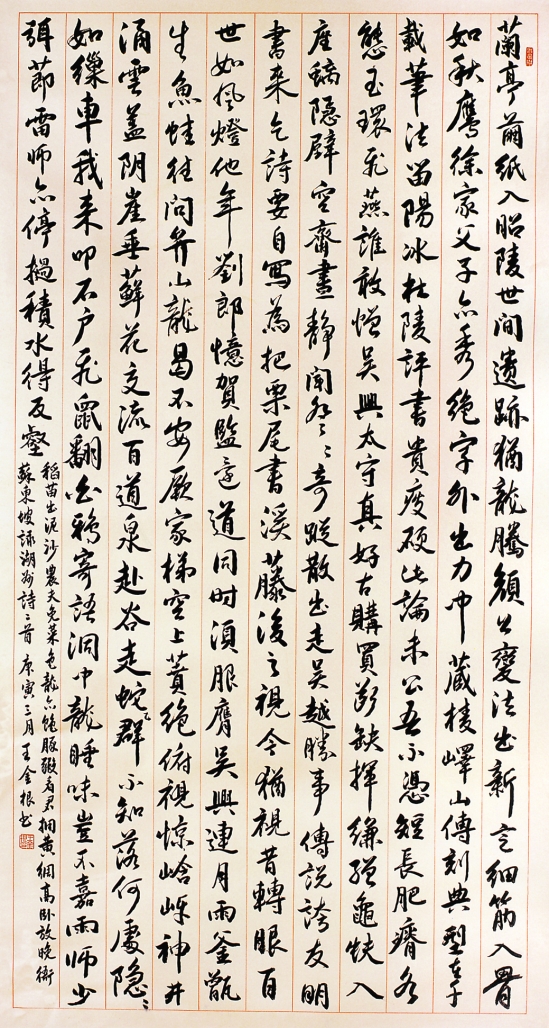 蘭亭繭紙入昭陵世间遺跡猶龍騰顏公變法出新意細筋入骨
如秋鷹徐家父子亦秀絕字外出力中藏棱嶧山傳刻典型在千
載筆法留陽冰杜陵評書貴瘦硬此論未公吾不憑短長肥瘠各
態玉環飛燕誰敢憎吳興太守真好古購買斷缺揮縑繒龜趺入
座螭隐壁空齋晝静聞登登奇蹤散出走吳越勝事傳說誇友朋
書来乞詩要自寫為把栗尾書溪藤後之視今猶視昔轉眼百
世如風燈他年劉郎憶賀監還道同时須服膺吳興連月雨釜甑
生魚蛙往問弁山龍曷不安厥家梯空上絕俯視惊峆岈神井
涌雲盖阴崖垂蘚花交流百道泉赴谷走蛇群不知落何處隐隐
如繅車我来叩石户飛鼠翻白鴉寄語洞中龍睡味豈不嘉雨師少
弭節雷师亦停撾積水得反壑
稻苗出泥沙農夫免菜色龍亦飽豚豭看君擁黃綢高卧放晚衙
蘇東坡詠湖州詩二首 庚寅三月 王金根書